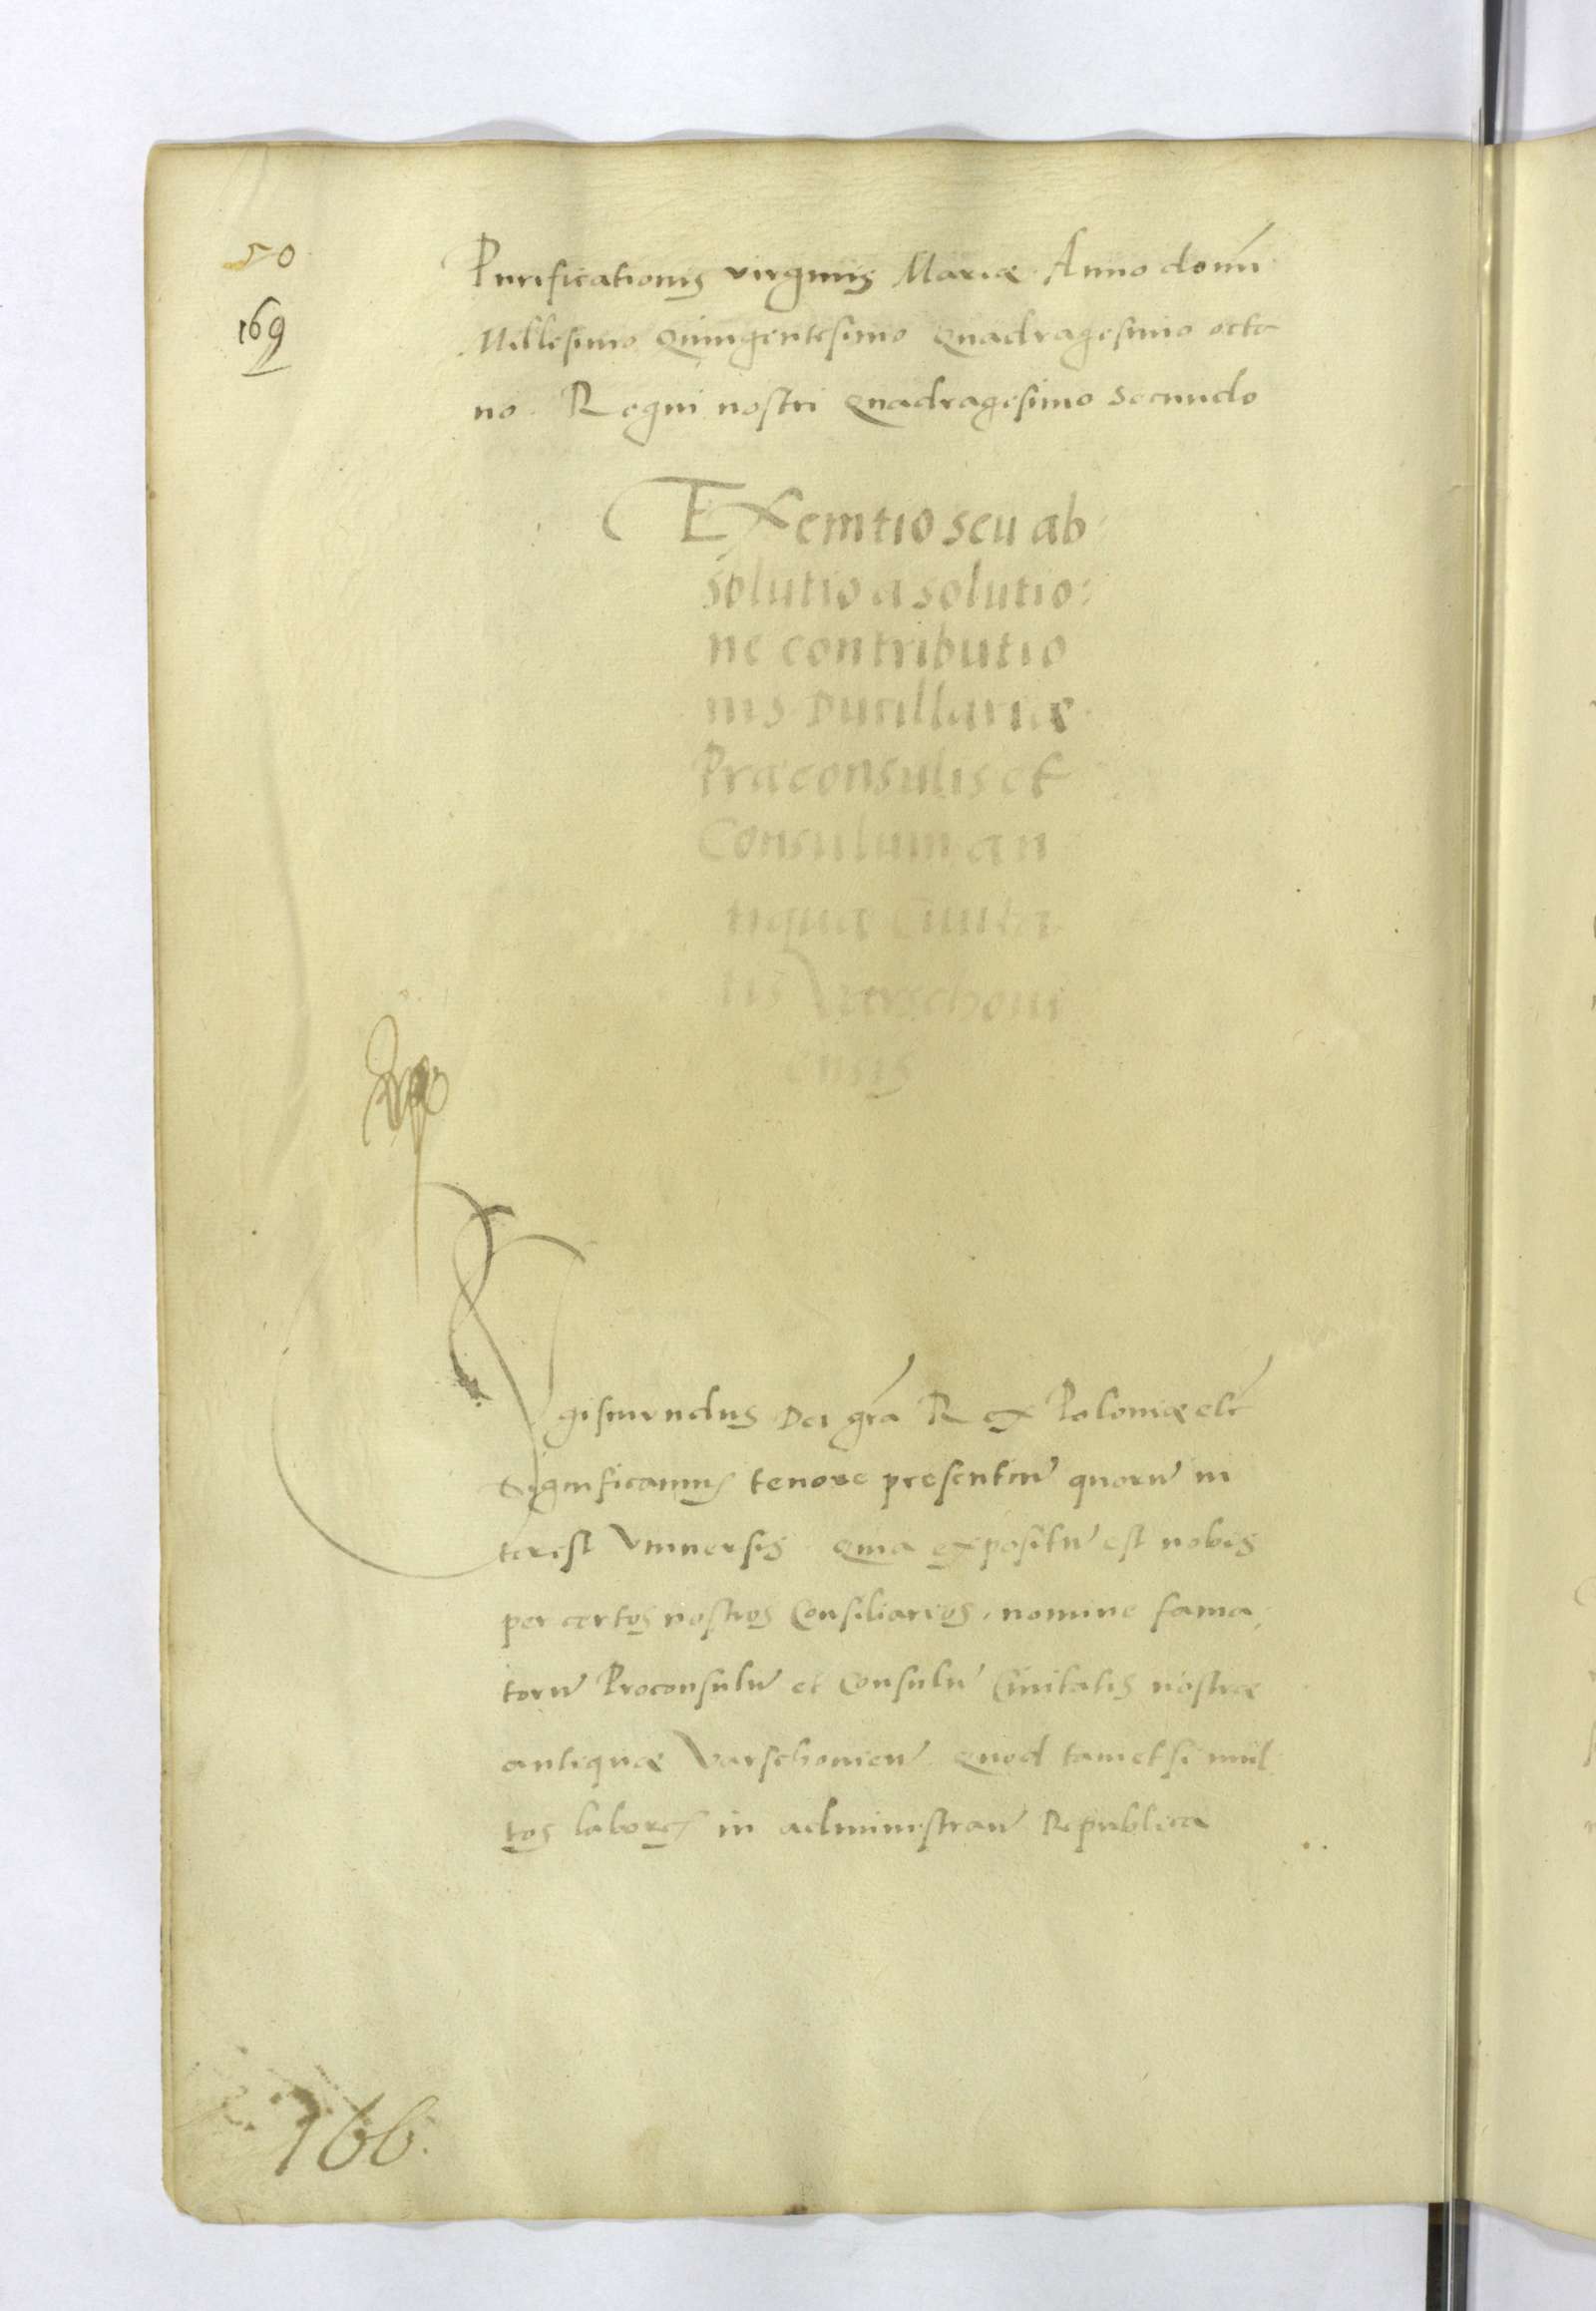 50
169
Purificationis virginis Mariæ Anno domi
Millesimo Quingentesimo Quadragesimo octa
no. Regni nostri Quadragesimo secundo
Exemtio seu ab
solutio a solutio:
ne contributio
nis Ducillariæ
Præconsulis et
Consulum an
tiquæ Ciuita
tis Varschoui
ensis
gismundus Dei gra Rex Poloniæ etc
Significamus tenore presentiu quoru in
terest Vniuersis Quia expositu est nobis
per certos nostros Consiliarios, nomine fama,
toru Proconsulu et Consulu Ciuitatis nostræ
antiquæ Varschouien Quod tametsi mul
tos labores in administran Republica
166.